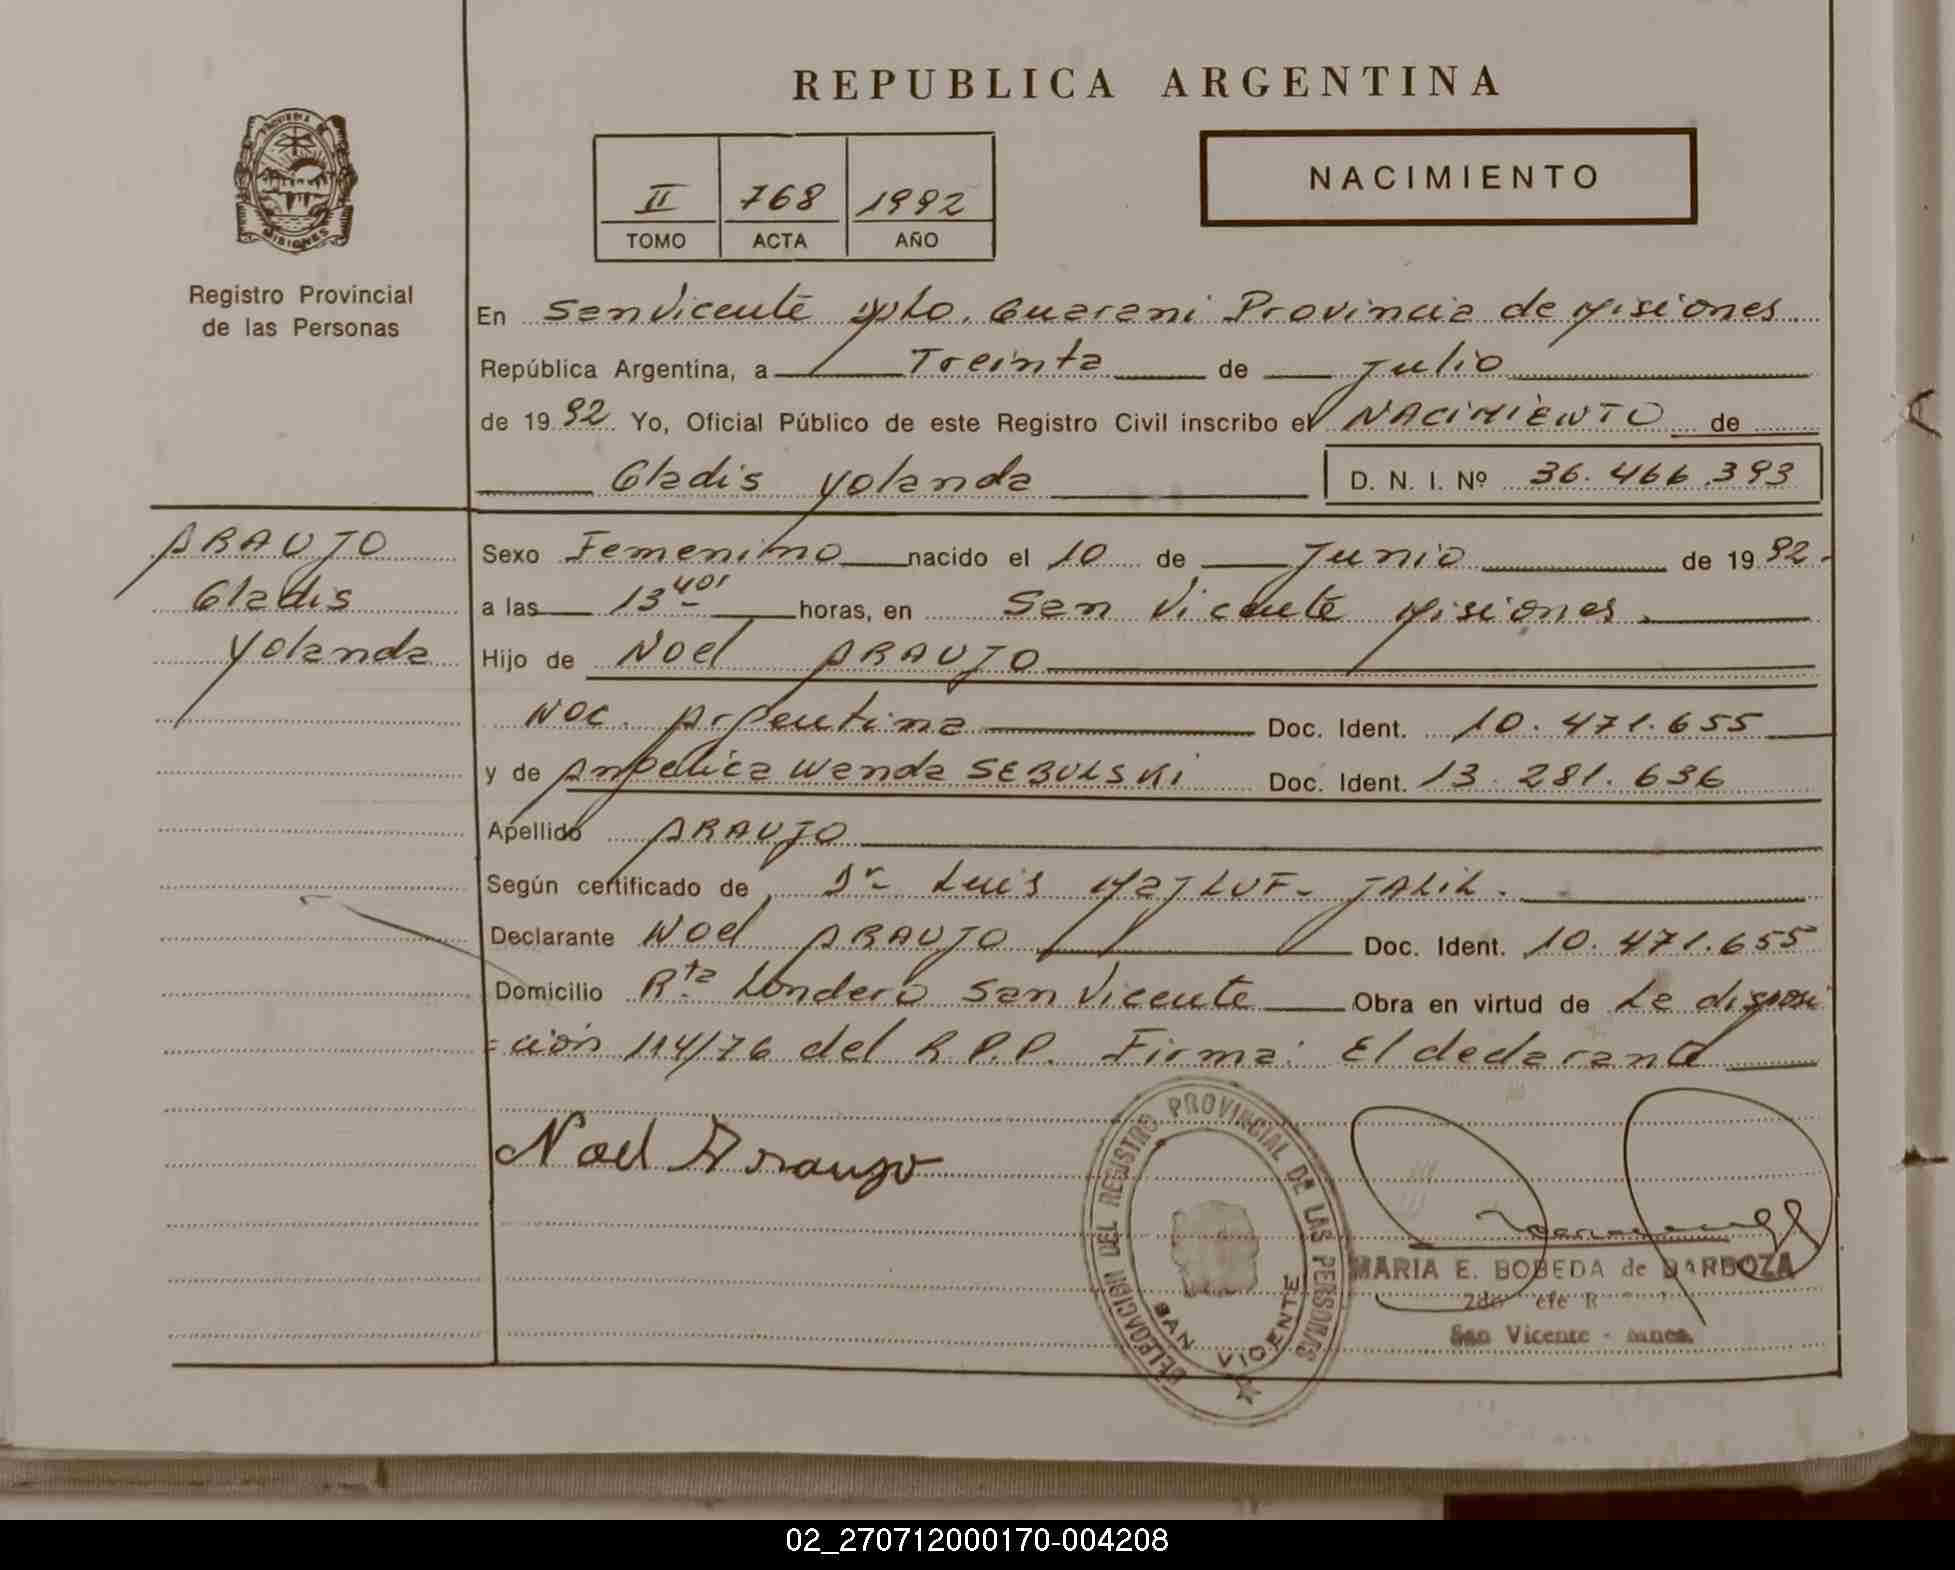 REPUBLICA ARGENTINA
PROVINCIA DE
MISIONES
Registro Provincial
de las Personas
II 768 1992
TOMO ACTA AÑO
NACIMIENTO
En San Vicente Dpto. Guarani Provincia de Misiones
República Argentina, a Treinta de Julio
de 19 92 Yo, Oficial Público de este Registro Civil inscribo el NACIMIENTO de
Gladis Yolanda D. N. I. Nº 36.466.393
ARAUJO
Gladis
Yolanda
Sexo Femenino nacido el 10 de Junio de 19 92.
a las 13 40' horas, en San Vicente Misiones.
Hijo de Noel ARAUJO
Nac. Argentina Doc. Ident. 10.471.655
y de Angelica Wanda SEBULSKI Doc. Ident. 13.281.636
Apellido ARAUJO
Según certificado de Dr Luis MAJLUF- JALIL.
Declarante Noel ARAUJO Doc. Ident. 10.471.655
Domicilio Rta Londero San Vicente Obra en virtud de La disposi
=ción 114/76 del R.P.P. Firma: El declarante
Noel Araujo
DELEGACION DEL REGISTRO PROVINCIAL DE LAS PERSONAS
SAN VICENTE
MARIA E. BOBEDA de BARBOZA
2do
San Vicente - Mnes.
02_270712000170-004208